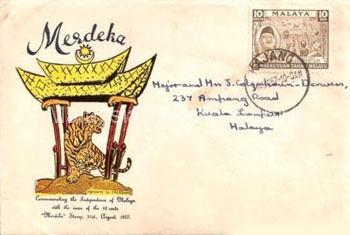 Merdeka
10 MALAYA 10
PERSEKUTUAN TANAH MELAYU
KAJANG
Major and Mrs J.
237 Ampang Road
Kuala Lumpur
Malaya
Commemorating the Independence of Malaya
with the issue of the 10 cents
"Merdeka" Stamp, 31st, August, 1957.